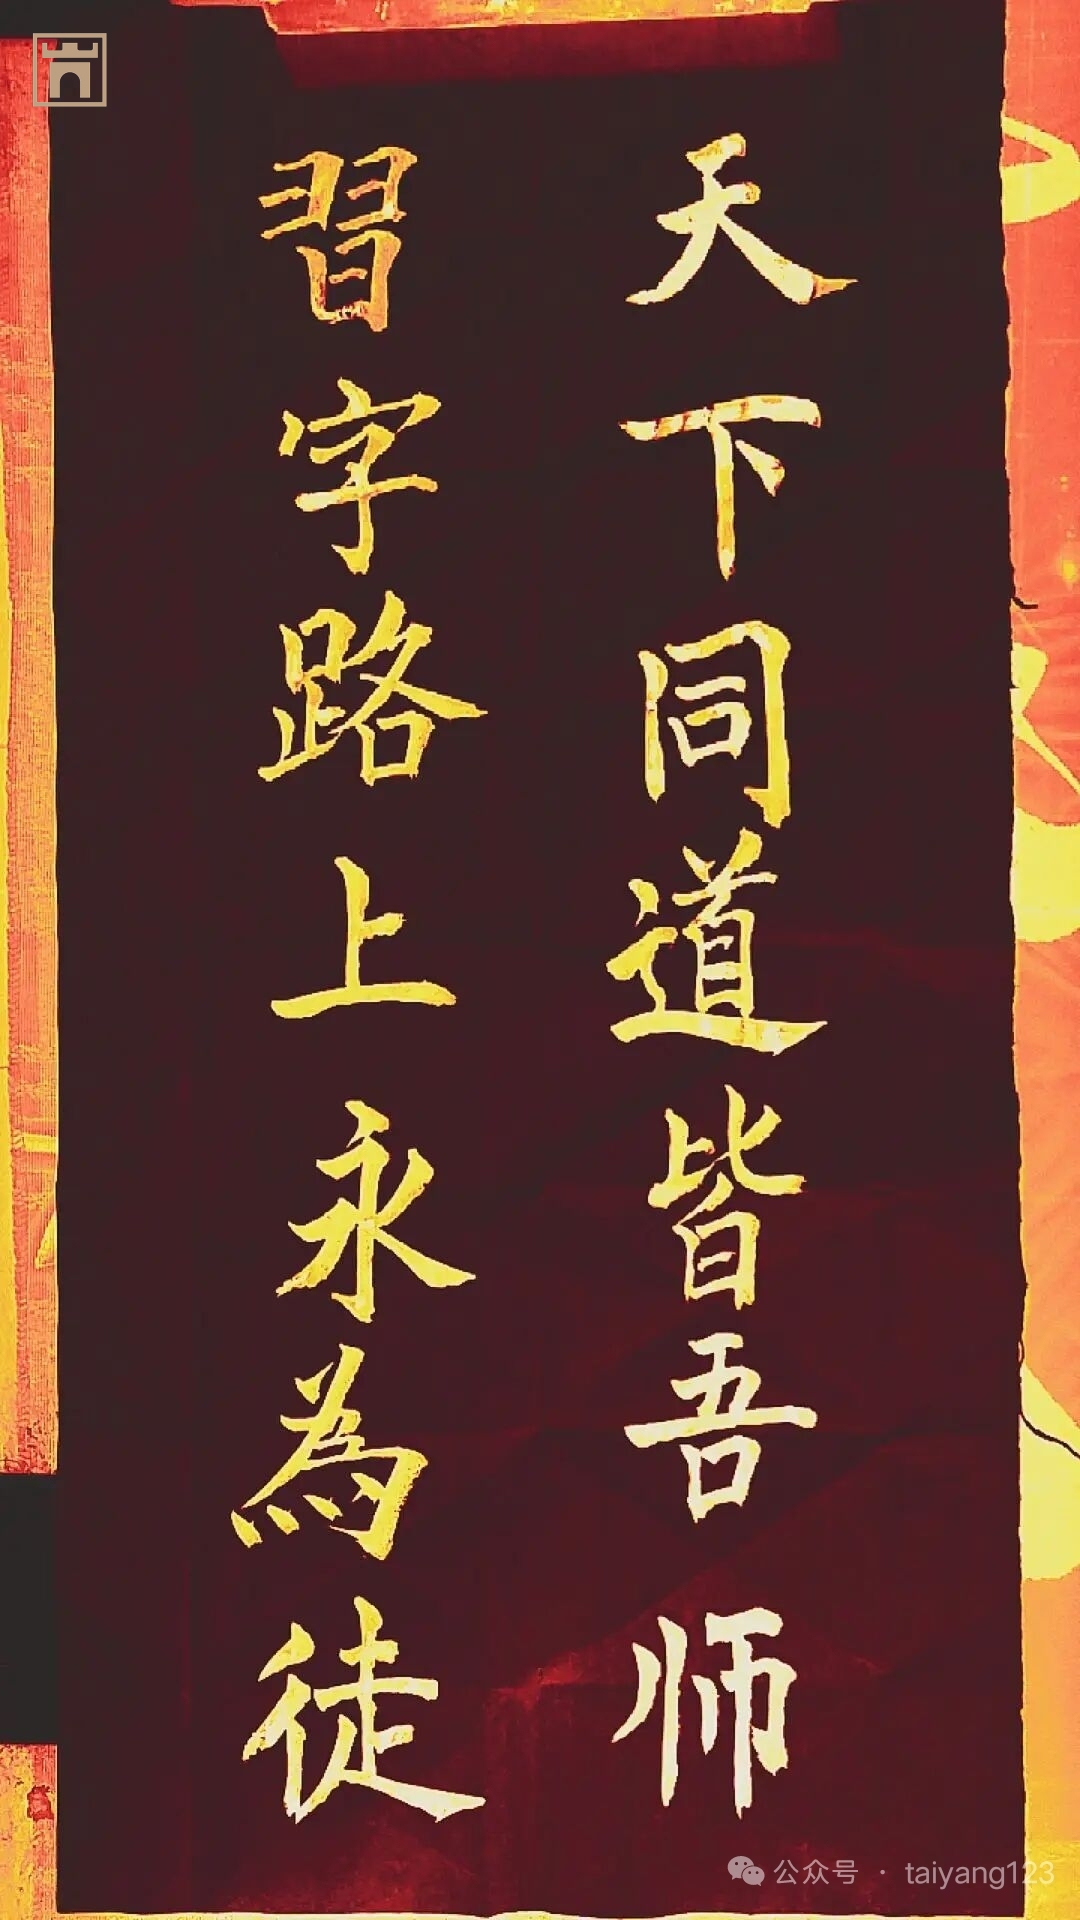 天下同道皆吾师
習字路上永為徒
公众号 · taiyang123